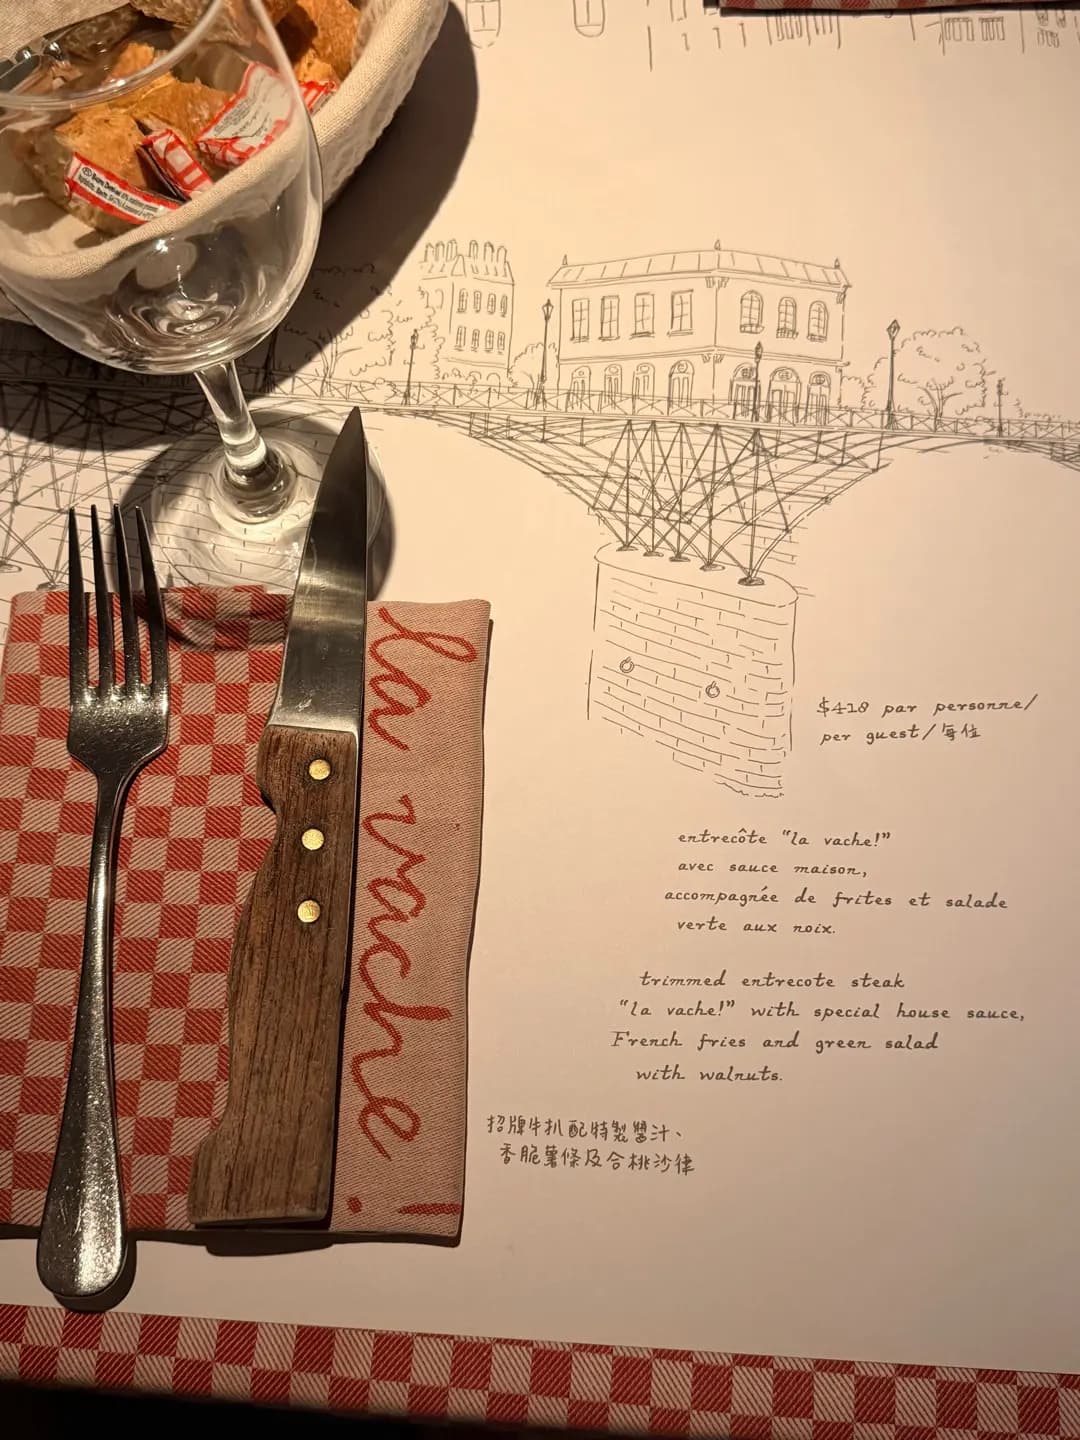 la vache!
$418 par personne/
per guest/每位
entrecôte "la vache!"
avec sauce maison,
accompagnée de frites et salade
verte aux noix.
trimmed entrecote steak
"la vache!" with special house sauce,
French fries and green salad
with walnuts.
招牌牛扒配特製醬汁、
香脆薯條及合桃沙律